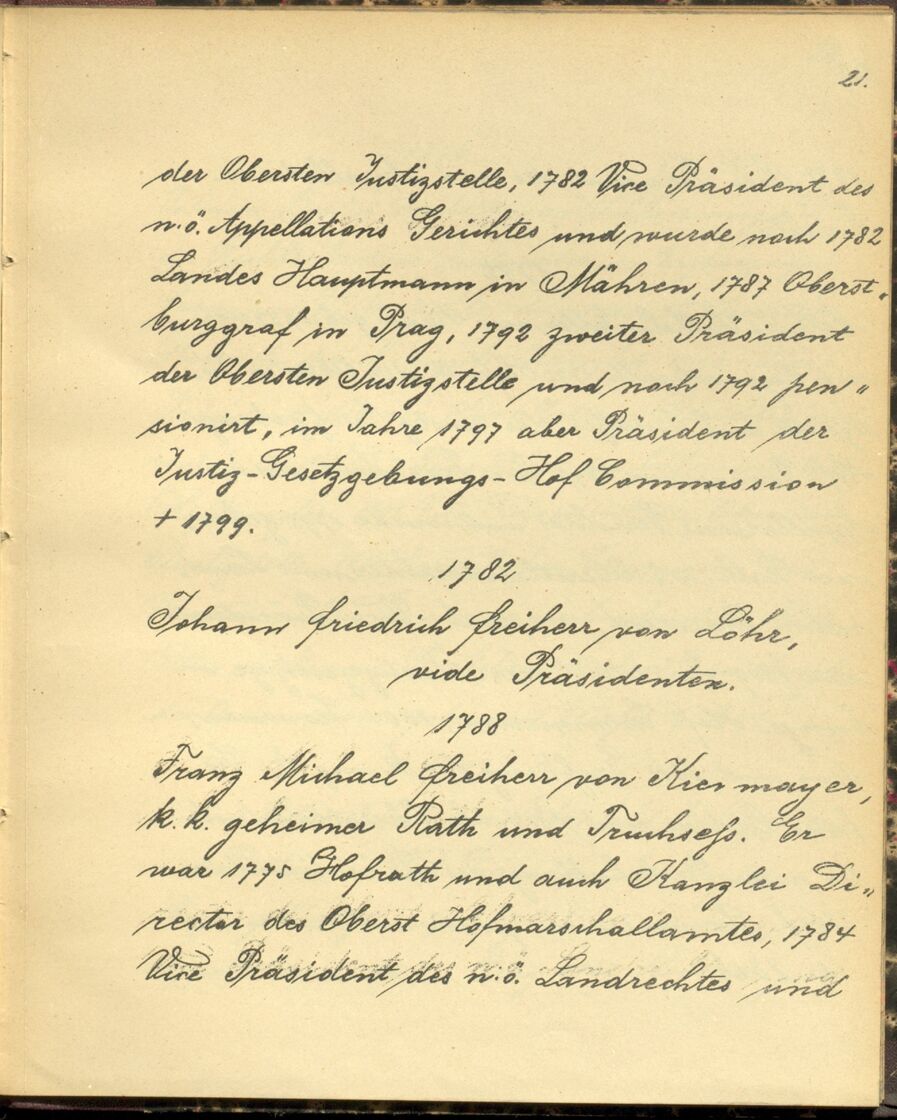 21.
der Obersten Justizstelle, 1782 Vice Präsident des
n.ö. Appellations Gerichtes und wurde noch 1782
Landes Hauptmann in Mähren, 1787 Oberst„
burggraf in Prag, 1792 zweiter Präsident
der Obersten Justizstelle und noch 1792 pen„
sionirt, im Jahre 1797 aber Präsident der
Justiz-Gesetzgebungs-Hof Commission
+ 1799.
1782
Johann Friedrich Freiherr von Löhr,
vide Präsidenten.
1788
Franz Michael Freiherr von Kienmayer,
k.k. geheimer Rath und Truchseß. Er
war 1775 Hofrath und auch Kanzlei Di„
rector des Oberst Hofmarschallamtes, 1784
Vice Präsident des n.ö. Landrechtes und